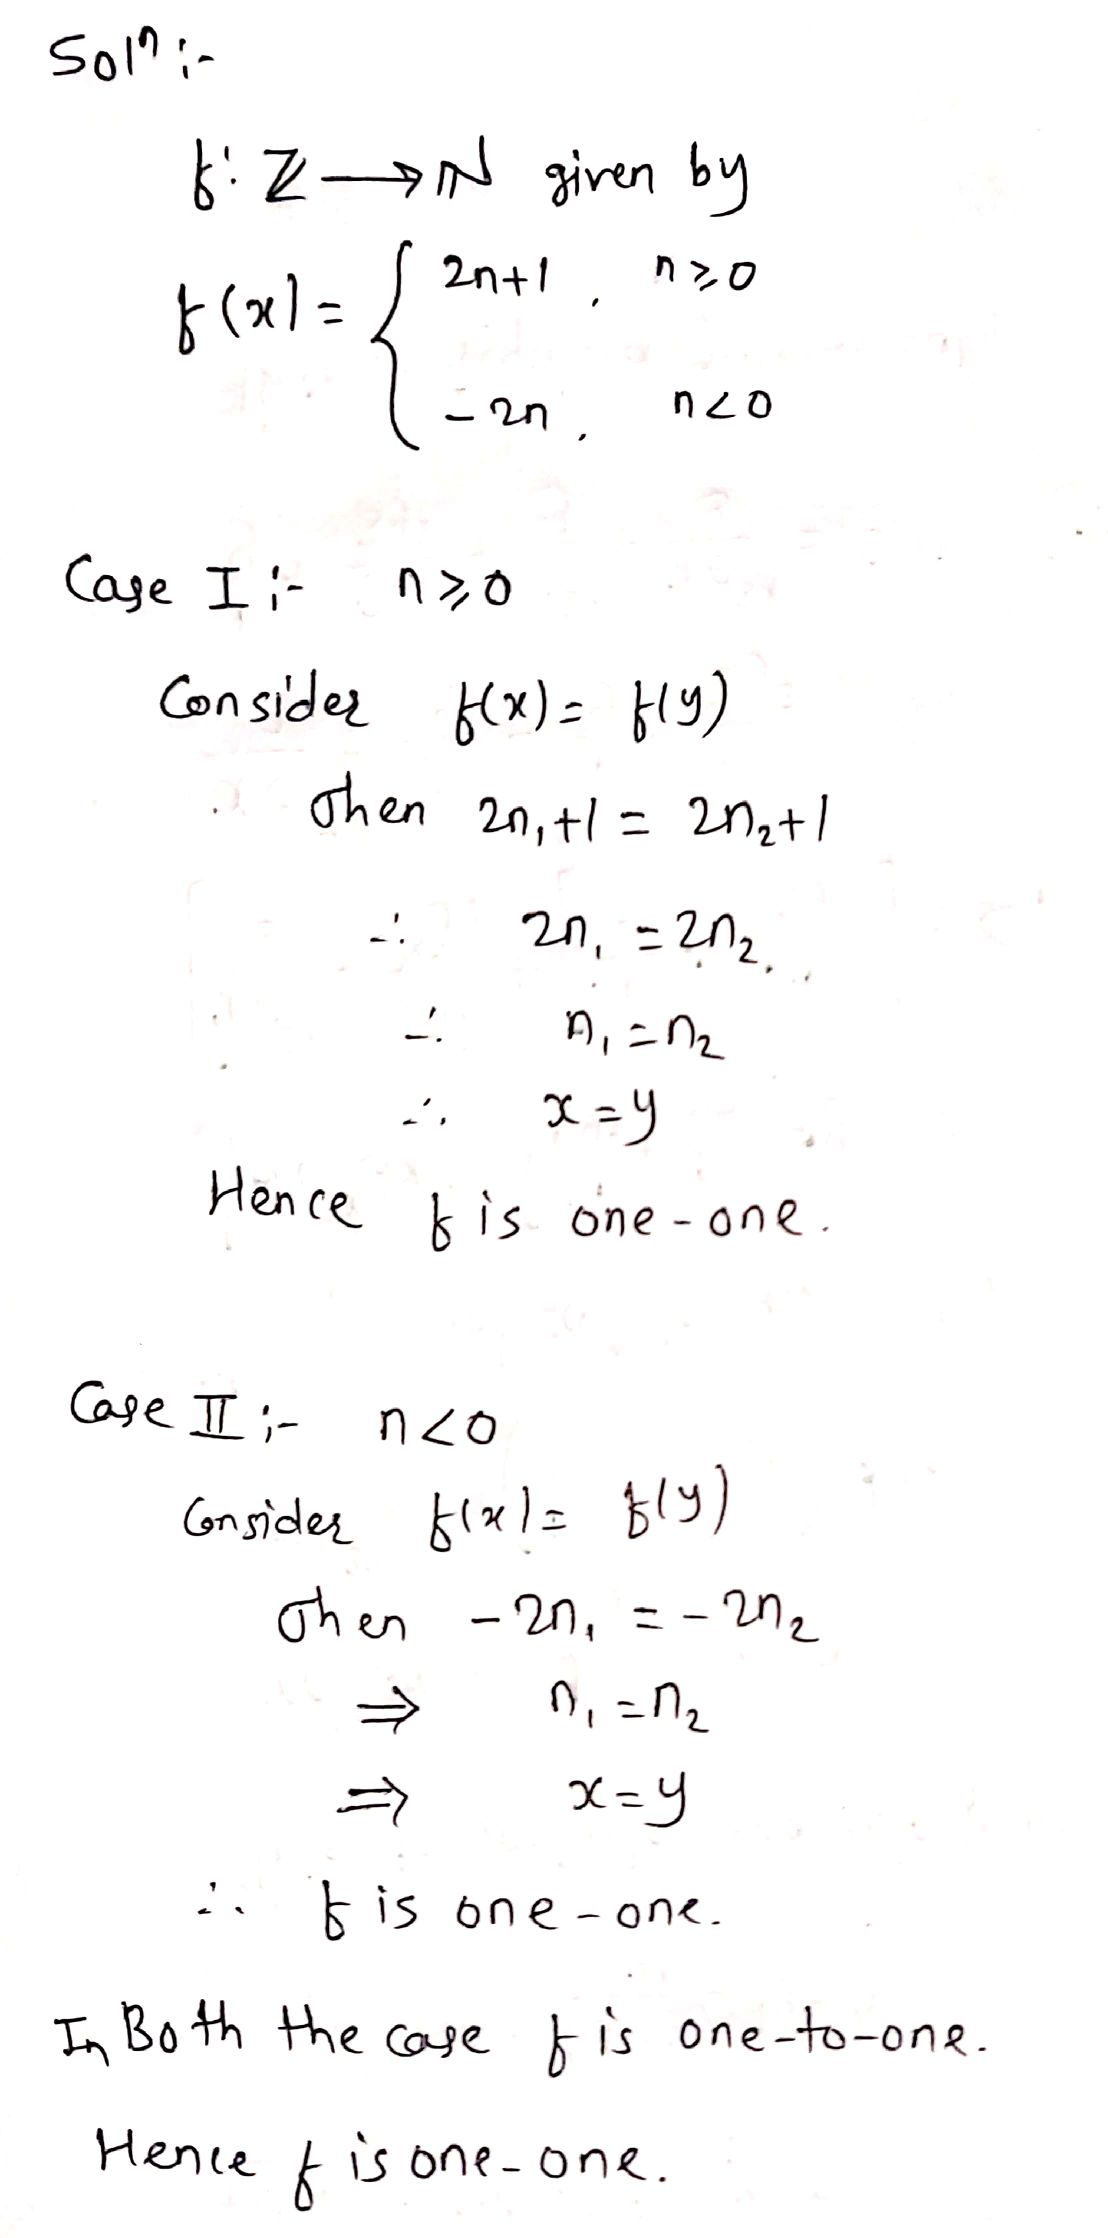 Solⁿ :-
f: ℤ → ℕ given by
f(x) = { 2n+1 , n ⩾ 0
-2n , n < 0
Case I :- n ⩾ 0
Consider f(x) = f(y)
Then 2n₁+1 = 2n₂+1
∴ 2n₁ = 2n₂.
∴ n₁ = n₂
∴ x = y
Hence f is one-one.
Case II :- n < 0
Consider f(x) = f(y)
Then -2n₁ = -2n₂
⇒ n₁ = n₂
⇒ x = y
∴ f is one-one.
In Both the case f is one-to-one.
Hence f is one-one.